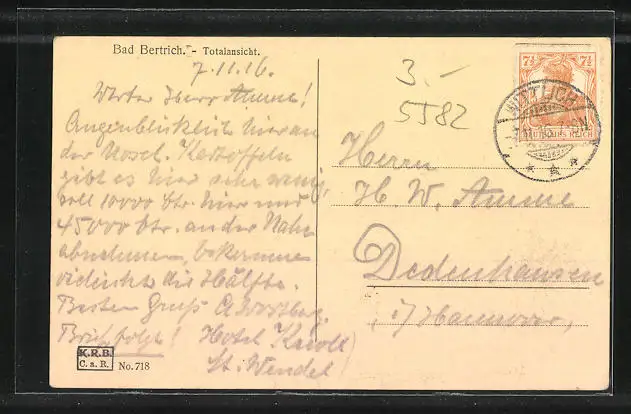 Bad Bertrich. - Totalansicht.
7.11.16.
Werter Herr Amme!
Augenblicklich hier an
der Mosel. Kartoffeln
gibt es hier sehr wenig,
soll 10000 Ctr. hier und
45000 Ctr. an der Nahe
abnehmen, bekomme
vieleicht die Hälfte.
Besten Gruß
Brief folgt! Hotel Knoll
St. Wendel
K.R.B.
C.a.R.
No. 718
3.-
5582
7½ 7½
DEUTSCHES REICH
WITTLICH
Herrn
H. W. Amme
Dedenhausen
i/Hannover,